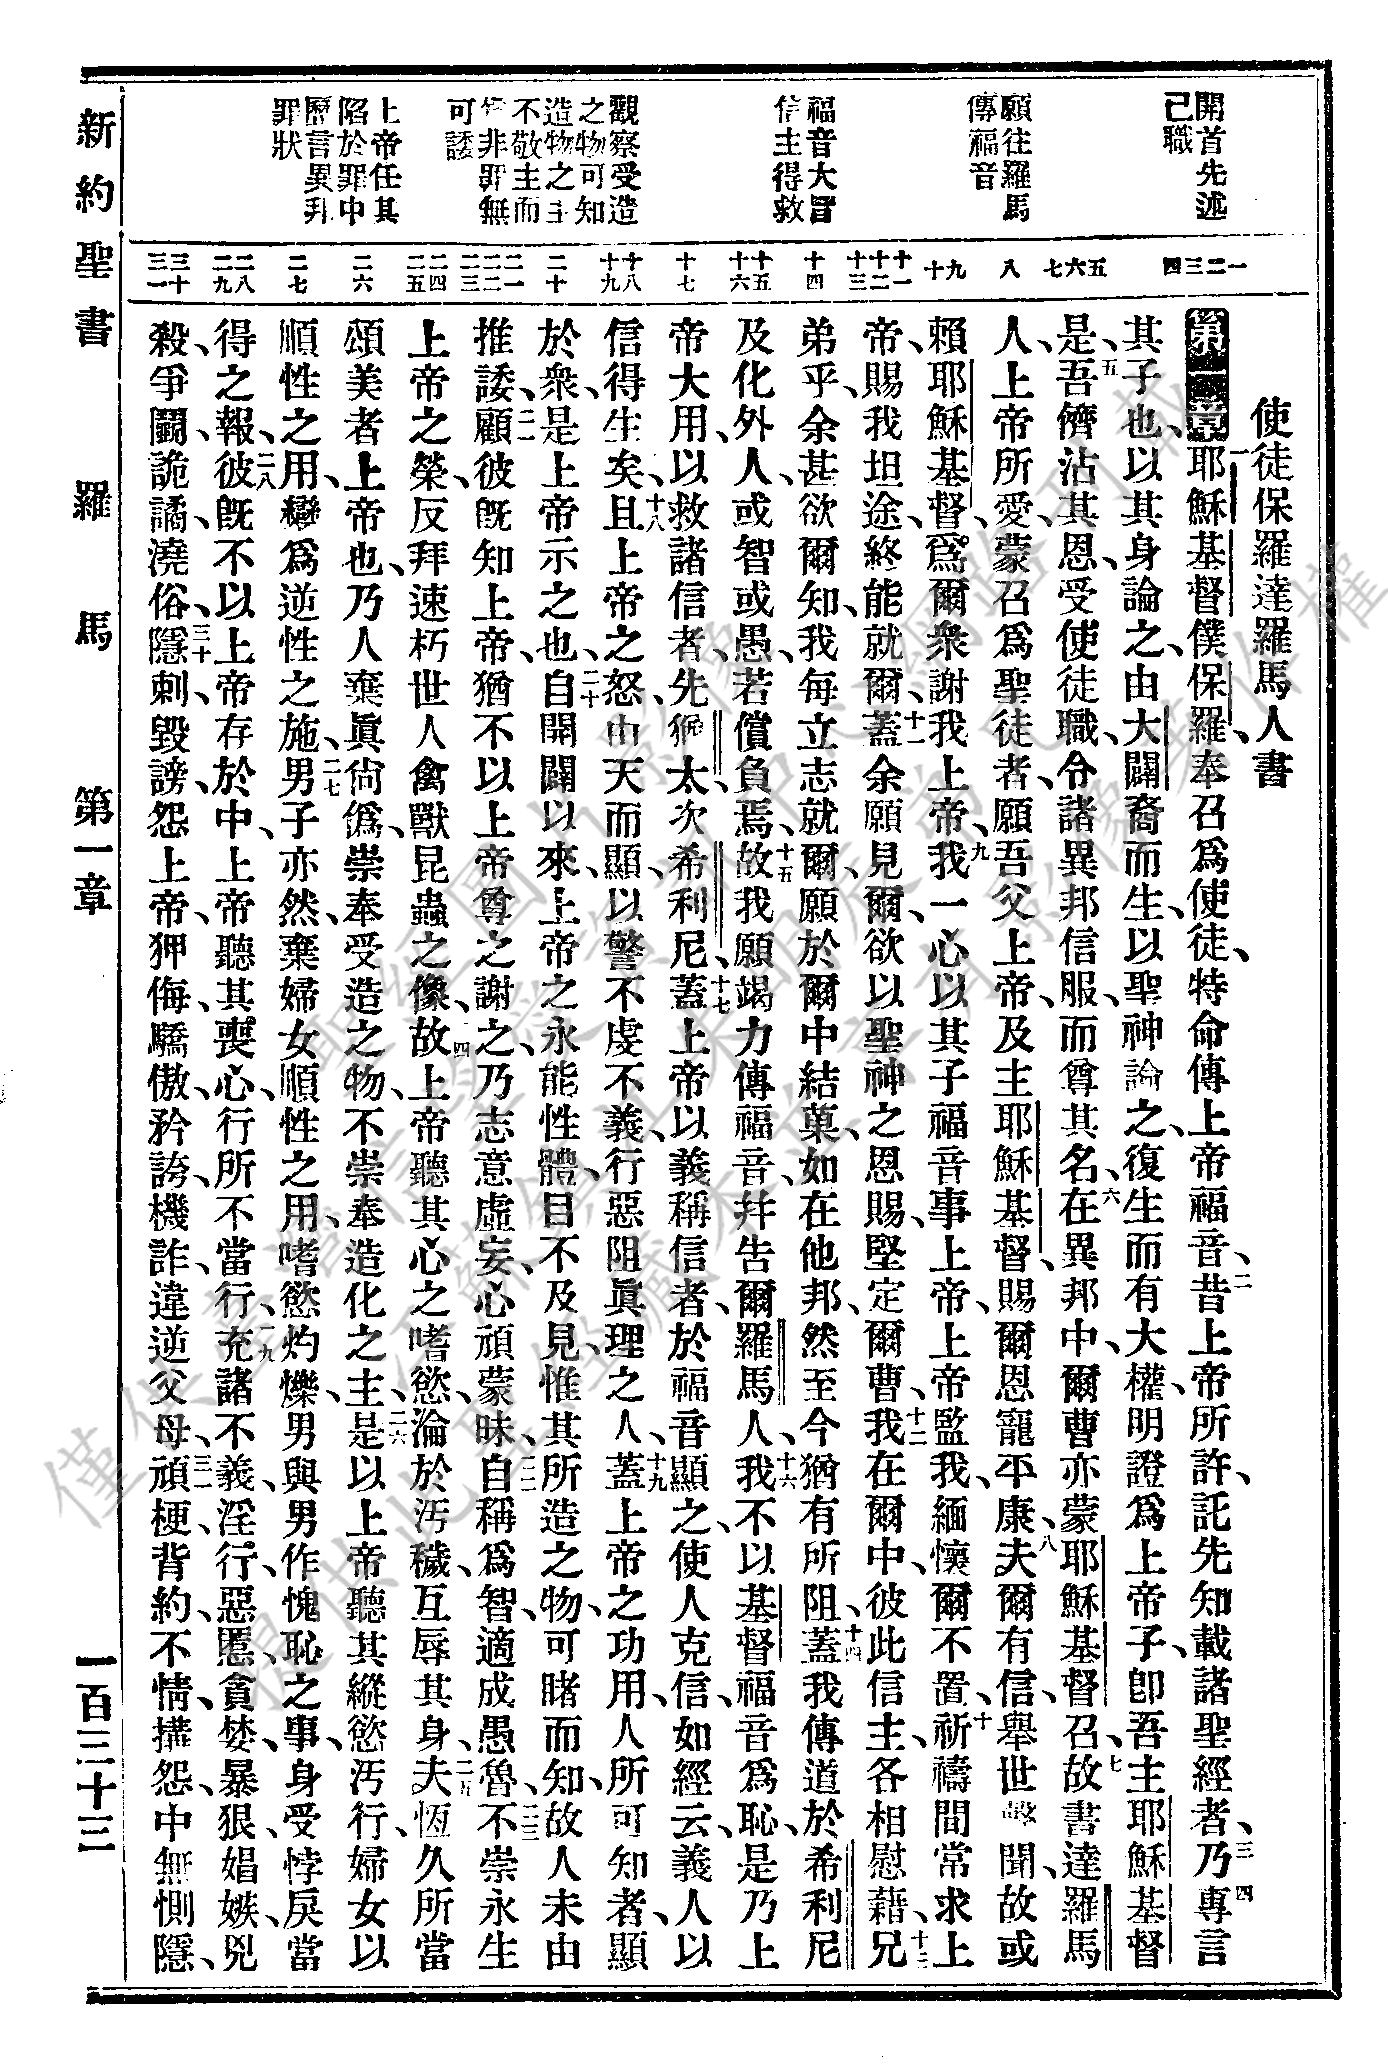 新約聖書 羅馬 第一章 一百三十三
開首先述
己職
願往羅馬
傳福音
福音大旨
信主得救
觀察受造
之物可知
造物之主
不敬主而
非罪無
可諉
上帝任其
陷於罪中
歷言異邦
罪狀
一 二 三 四 五 六 七 八 九 十 十一 十二 十三 十四 十五 十六 十七 十八 十九 二十 二一 二二 二三 二四 二五 二六 二七 二八 二九 三十 三一
使徒保羅達羅馬人書
第一章 一耶穌基督僕保羅、奉召爲使徒、特命傳上帝福音、二昔上帝所許、託先知載諸聖經者、三乃專言四
其子也、以其身論之、由大闢裔而生、以聖神論之、復生而有大權、明證爲上帝子、卽吾主耶穌基督
是、五吾儕沾其恩、受使徒職、令諸異邦信服、而尊其名、六在異邦中、爾曹亦蒙耶穌基督召、七故書達羅馬
人、上帝所愛、蒙召爲聖徒者、願吾父上帝、及主耶穌基督、賜爾恩寵平康、八夫爾有信、舉世聞、故或
賴耶穌基督、爲爾衆謝我上帝、九我一心以其子福音事上帝、上帝監我、緬懷爾不置、十祈禱間常求上
帝、賜我坦途、終能就爾、十一蓋余願見爾、欲以聖神之恩賜、堅定爾曹、十二我在爾中、彼此信主、各相慰藉、十三兄
弟乎、余甚欲爾知、我每立志就爾、願於爾中結菓、如在他邦、然至今猶有所阻、十四蓋我傳道於希利尼
及化外人、或智或愚、若償負焉、十五故我願竭力傳福音、幷告爾羅馬人、十六我不以基督福音爲恥、是乃上
帝大用、以救諸信者、先猶太、次希利尼、十七蓋上帝以義稱信者、於福音顯之、使人克信、如經云、義人以
信得生矣、十八且上帝之怒、由天而顯、以警不虔不義、行惡阻眞理之人、十九蓋上帝之功用、人所可知者、顯
於衆、是上帝示之也、二十自開闢以來、上帝之永能性體、目不及見、惟其所造之物、可睹而知、故人未由
推諉、二一顧彼旣知上帝、猶不以上帝尊之謝之、乃志意虛妄、心頑蒙昧、二二自稱爲智、適成愚魯、二三不崇永生
上帝之榮、反拜速朽世人禽獸昆蟲之像、四故上帝聽其心之嗜慾、淪於汚穢、互辱其身、二五夫恆久所當
頌美者、上帝也、乃人棄眞尙僞、崇奉受造之物、不崇奉造化之主、二六是以上帝聽其縱慾汚行、婦女以
順性之用、變爲逆性之施、二七男子亦然、棄婦女順性之用、嗜慾灼爍、男與男作愧恥之事、身受悖戾當
得之報、二八彼旣不以上帝存於中、上帝聽其喪心、行所不當行、二九充諸不義、淫行、惡慝、貪婪、暴狠、娼嫉、兇
殺、爭鬭、詭譎、澆俗、三十隱刺、毀謗、怨上帝、狎侮、驕傲、矜誇、機詐、違逆父母、三一頑梗、背約、不情、搆怨、中無惻隱、